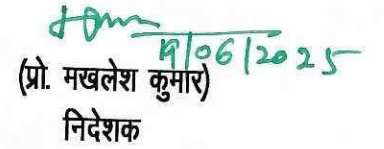 19/06/2025
(प्रो. मखलेश कुमार)
निदेशक